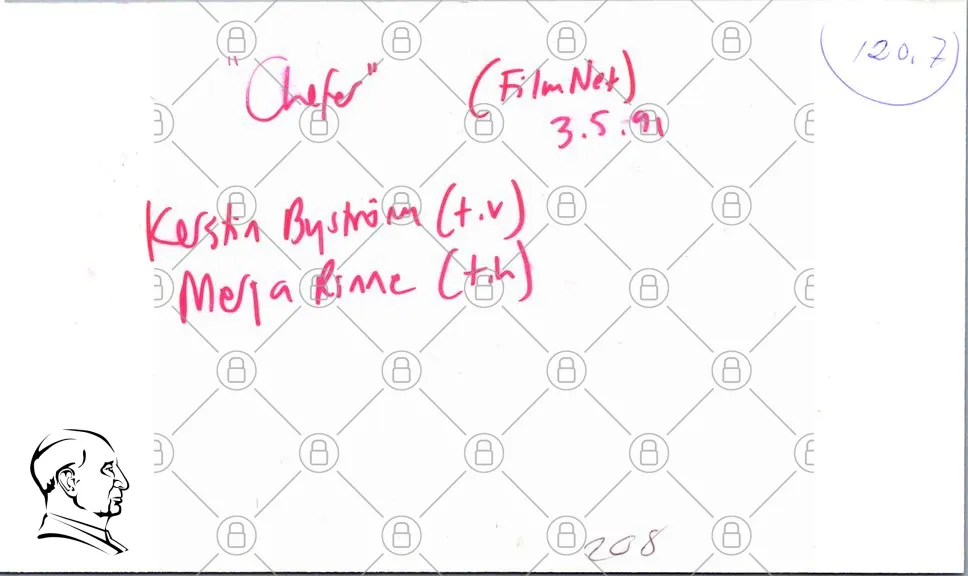 "Chefer" (FilmNet)
3.5.91
120.7
Kerstin Byström (t.v)
Merja Rinne (t.h)
208